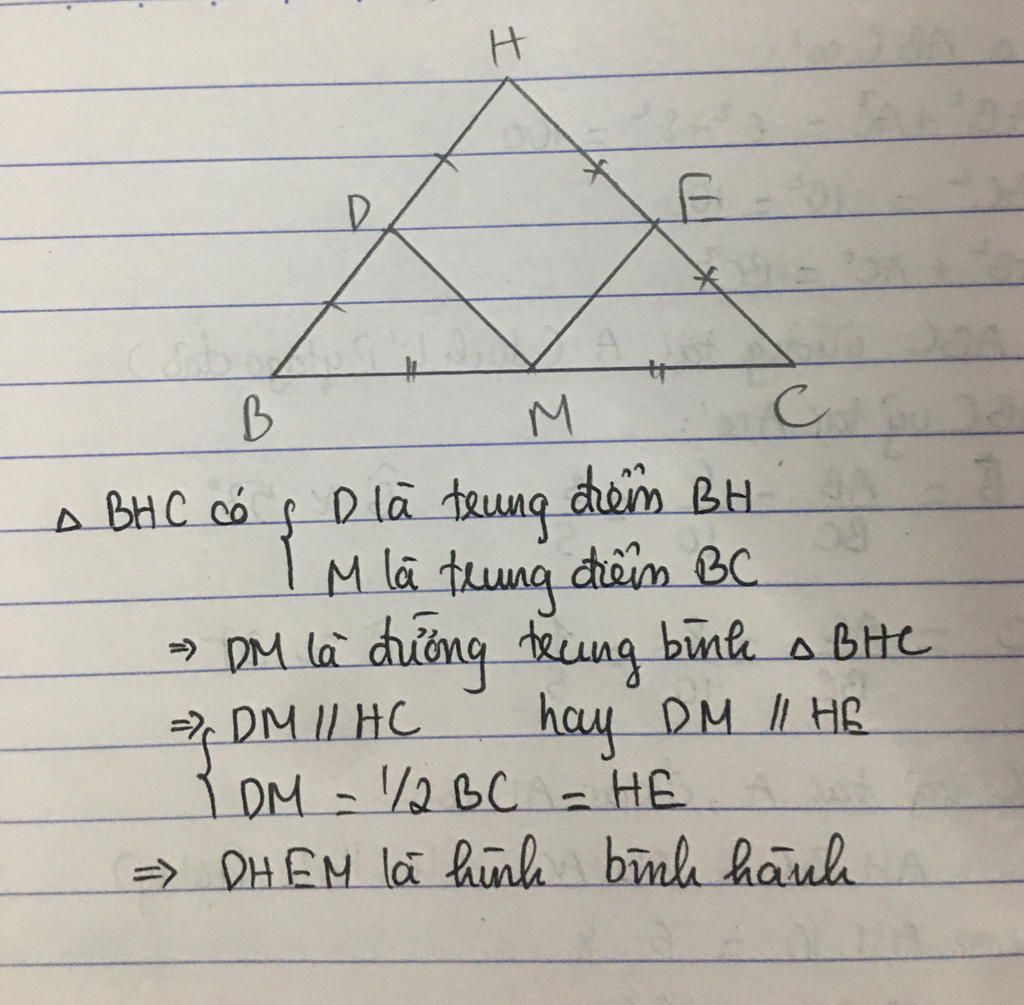 H
D
E
B
M
C
Δ BHC có { D là trung điểm BH
M là trung điểm BC
⇒ DM là đường trung bình Δ BHC
⇒ { DM // HC hay DM // HE
DM = 1/2 BC = HE
⇒ DHEM là hình bình hành